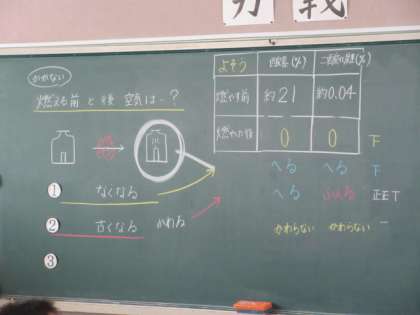 戦
かかない
燃える前と後 空気は…?
① なくなる
② 古くなる かわる
③
よそう 酸素(%) 二酸化炭素(%)
燃やす前 約21 約0.04
燃やした後 0 0 下
へる へる 下
へる ふえる 正正下
かわらない かわらない 一